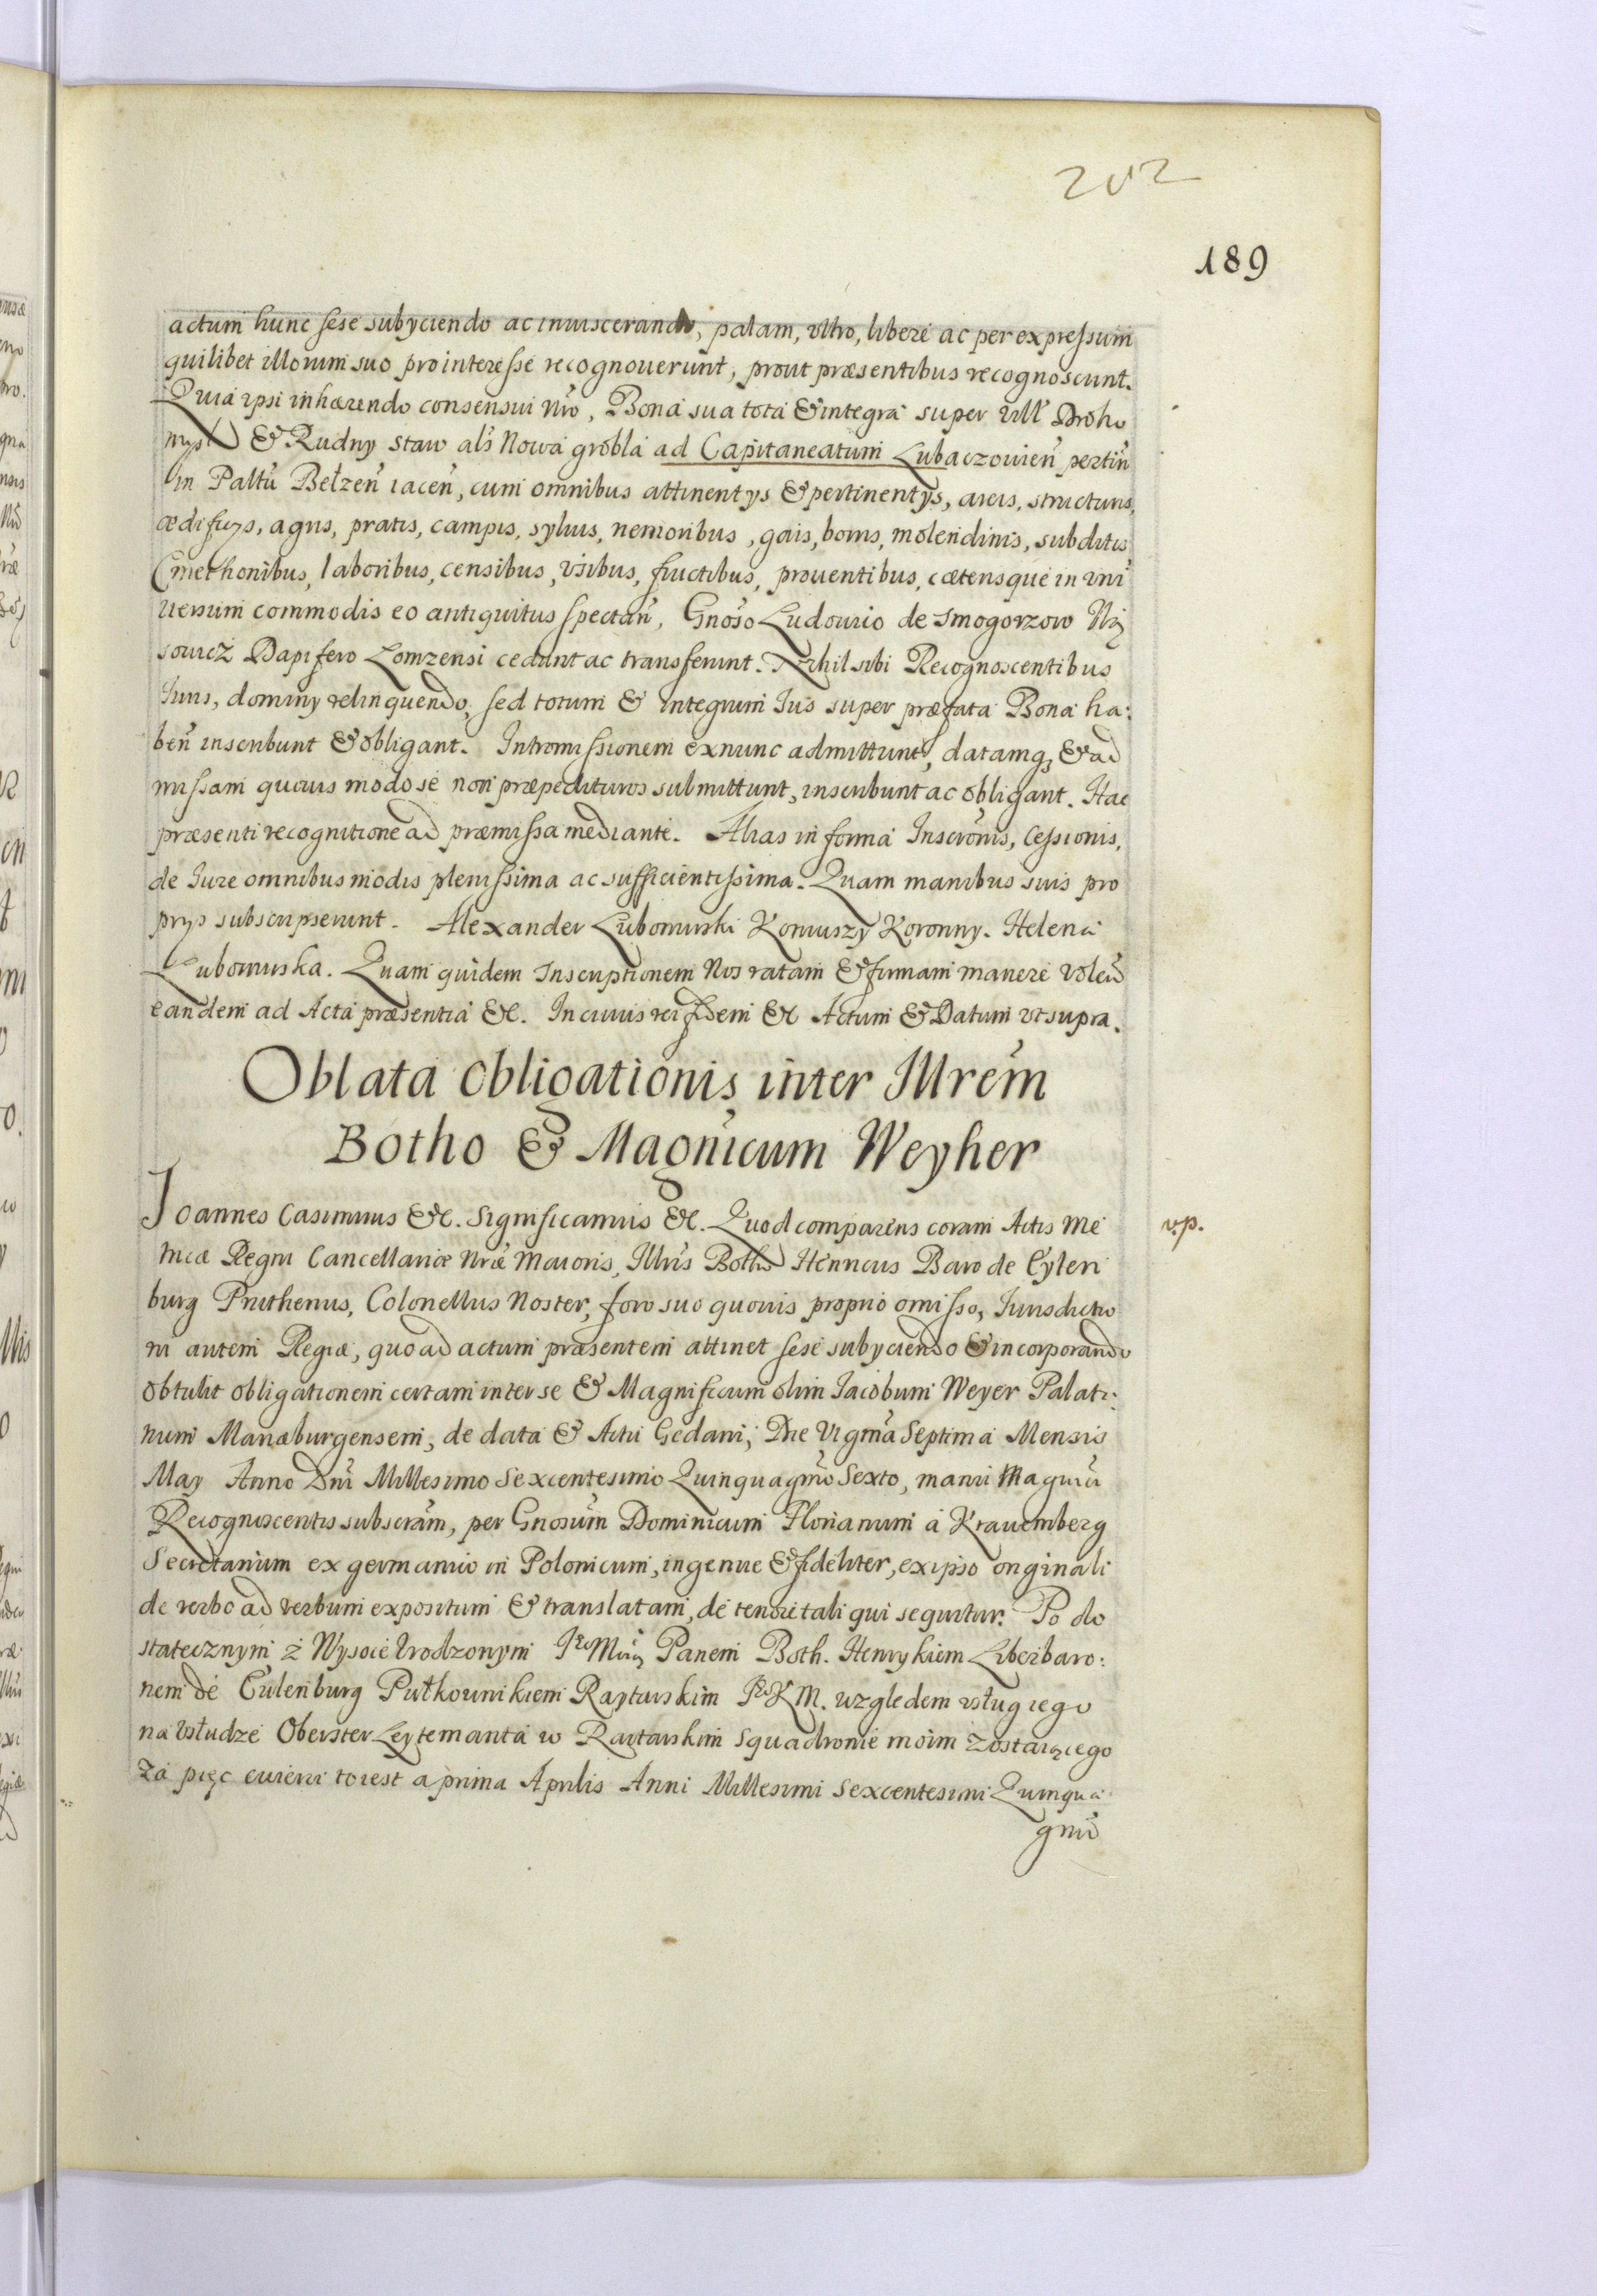 202
189
actum hunc sese subyciendo ac inuiscerando, palam, vltro, liberè ac per expressum
quilibet illorum suo pro interesse recognouerunt, prout præsentibus recognoscunt.
Quia ipsi inhærendo consensui Nrõ, Bona sua tota & integra super vill Droho
mysl & Rudny staw als Nowa grobla ad Capitaneatum Lubaczouien pertin
in Paltu Bełzen iacen, cum omnibus attinentys & pertinentys, areis, structuris,
ædificys, agris, pratis, campis, syluis, nemoribus, gais, boris, molendinis, subditis
Cmethonibus, laboribus, censibus, vsibus, fructibus, prouentibus, cæterisque in vni
uersum commodis eo antiquitus spectan, Gnoso Ludouico de Smogorzow Ni
souicz Dapifero Lomzensi cedunt ac transferunt. Nihil sibi Recognoscentibus
Iuris, dominy relinquendo, sed totum & integrum Ius super præfata Bona ha:
ben inscribunt & obligant. Intromissionem exnunc admittunt, datamq & ad
missam quouis modo se non præpedituros submittunt, inscribunt ac obligant. Hac
præsenti recognitione ad præmissa mediante. Alias in forma Inscronis, Cessionis,
de Iure omnibus modis plenissima ac sufficientissima. Quam manibus suis pro
prys subscripserunt. Alexander Lubomirski Koniuszy Koronny. Helena
Lubomirska. Quam quidem Inscriptionem Nos ratam & firmam manere volen
eandem ad Acta præsentia &c. In cuius rei fidem &c Actum & Datum vt supra.
Oblata obligationis inter Illrem
Botho & Magnicum Weyher
Joannes Casimirus &c. Significamus &c. Quod comparens coram Actis Me
v.p.
tricæ Regni Cancellariæ Nræ Maioris, Illris Botho Henricus Baro de Eylen
burg Pruthenus, Colonellus Noster, foro suo quouis proprio omisso, Iurisdictio
ni autem Regiæ, quoad actum præsentem attinet sese subyciendo & incorporando
obtulit obligationem certam inter se & Magnificum olim Iacobum Weyer Palati:
num Mariæburgensem, de data & Actu Gedani, Die Vigma Septima Mensis
May Anno Dni Millesimo Sexcentesimo Quinquagmo Sexto, manu Magnici
Recognoscentis subscram, per Gnosum Dominicum Florianum a Krauemberg
Secretarium ex germanico in Polonicum, ingenue & fideliter, ex ipso originali
de verbo ad verbum expositum & translatam, de tenore tali qui sequitur. Po do
statecznym z Wysoce Vrodzonym Panem Both. Henrykiem Liberbaro:
nem de Eulenburg Pułkownikiem Raytarskim KM. wzgledem vsług iego
na vsłudze Oberster Leytemanta w Raytarskim squadronie moim zostaiącego
za pięc cwierci toiest a prima Aprilis Anni Millesimi Sexcentesimi Quinqua
gmi